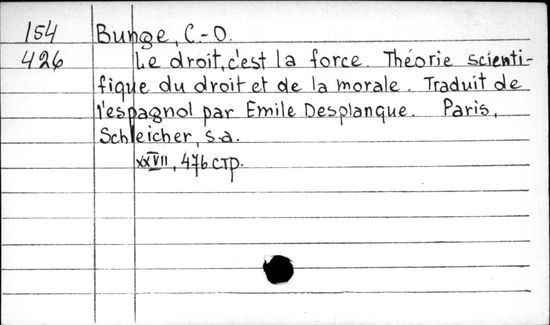 154 Bunge, C.-O.
426 Le droit, c'est la force. Théorie scienti-
fique du droit et de la morale. Traduit de
l'espagnol par Emile Desplanque. Paris,
Schleicher, s.a.
XXVII, 476 стр.